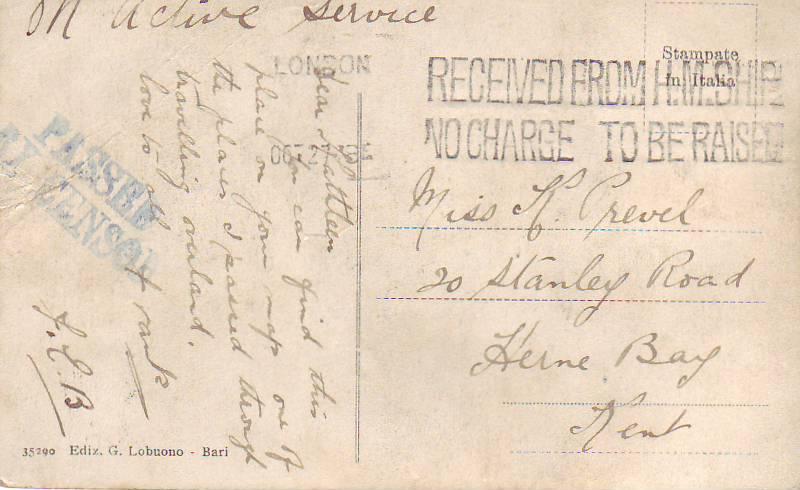 On Active Service
Stampate
In Italia
LONDON
OCT
RECEIVED FROM H.M. SHIP
NO CHARGE TO BE RAISED
PASSED
BY CENSOR
Dear Kathleen
You can find this
place on your map one of
the places I passed through
travelling overland.
love to and frank
J.C.B
Miss K. Prevel
20 Stanley Road
Herne Bay
Kent
35290 Ediz. G. Lobuono - Bari